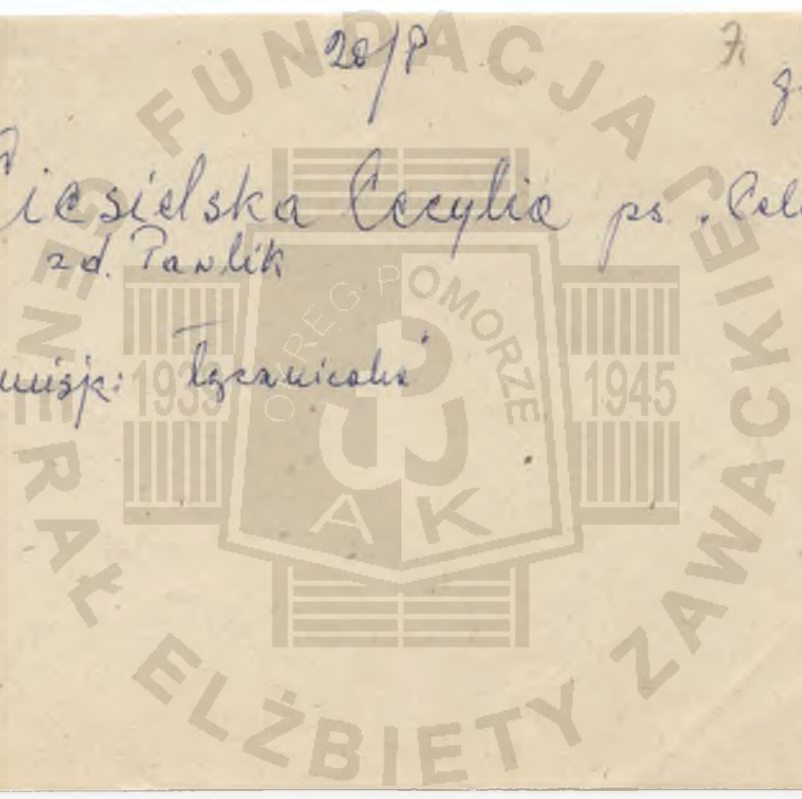 20/P
7.
Ciesielska Cecylia ps. „Cel
zd. Pawlik
Łączniczka
FUNDACJA
GENERAŁ ELŻBIETY ZAWACKIEJ
OKRĘG POMORZE
1939
1945
AK